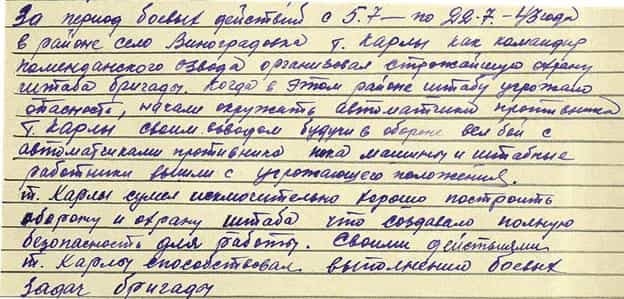 За период боевых действий с 5.7 — по 22-7.-43 года
в районе село Виноградовка т. Карлы как командир
комендантского взвода организовал строжайшую охрану
штаба бригады. Когда в этом районе штабу угрожала
опасность, начали окружать автоматчики противника
т. Карлы своим взводом будучи в обороне вел бой с
автоматчиками противника пока машины и штабные
работники вышли с угрожающего положения.
т. Карлы сумел исключительно хорошо построить
оборону и охрану штаба что создавало полную
безопасность для работы. Своими действиями
т. Карлы способствовал выполнению боевых
задач бригады